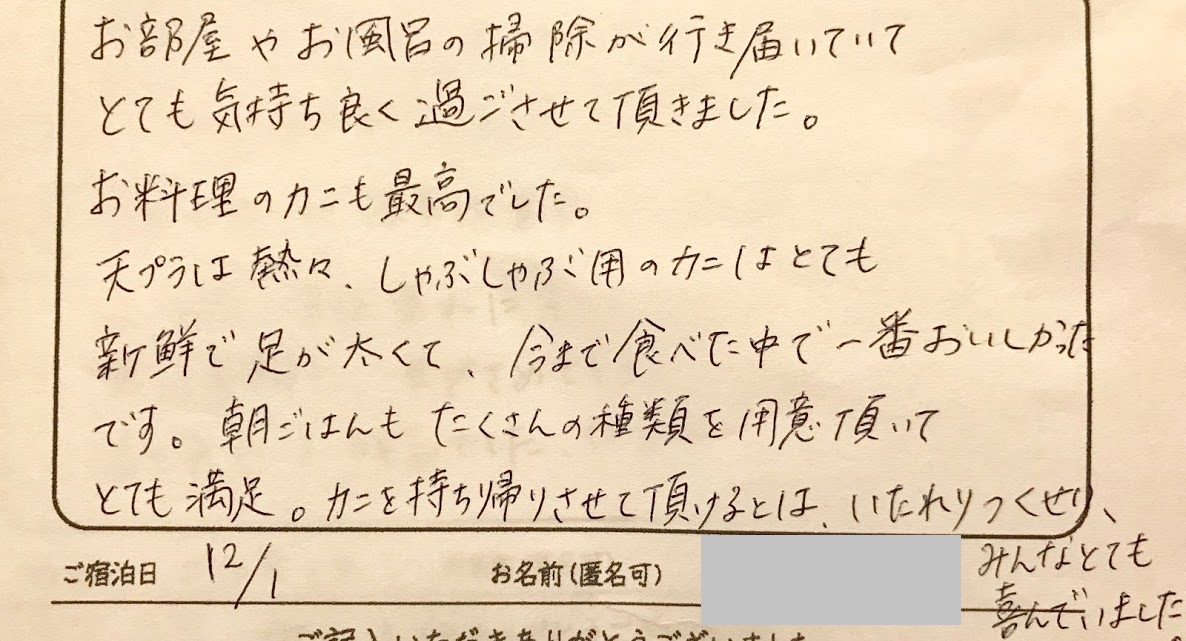 お部屋やお風呂の掃除が行き届いていて
とても気持ち良く過ごさせて頂きました。
お料理のカニも最高でした。
天プラは熱々、しゃぶしゃぶ用のカニはとても
新鮮で足が太くて、今まで食べた中で一番おいしかった
です。朝ごはんもたくさんの種類を用意頂いて
とても満足。カニを持ち帰りさせて頂けるとは、いたれりつくせり、
みんなとても
喜んでいました
ご宿泊日 12/1 お名前(匿名可)
ご記入いただきありがとうございました